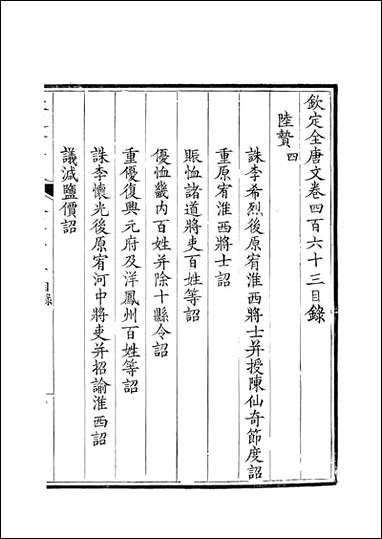 欽定全唐文卷四百六十三目錄
陸贄四
誅李希烈後原宥淮西將士并授陳仙奇節度詔
重原宥淮西將士詔
賑恤諸道將吏百姓等詔
優恤畿內百姓并除十縣令詔
重優復興元府及洋鳳州百姓等詔
誅李懷光後原宥河中將吏并招諭淮西詔
議減鹽價詔
目錄